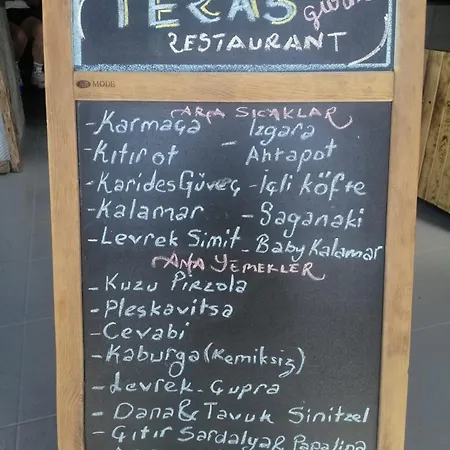 TERAS
RESTAURANT
MODE
ARA SICAKLAR
- Karmaça
- Izgara
- Kıtır ot
Ahtapot
- Karides Güveç
- İçli Köfte
- Kalamar
- Saganaki
- Levrek Simit
- Baby Kalamar
ANA YEMEKLER
- Kuzu Pirzola
- Pleşkavitsa
- Cevabi
- Kaburga (Kemiksiz)
- Levrek - Çupra
- Dana & Tavuk Sinitzel
- Çıtır Sardalya & Papalina